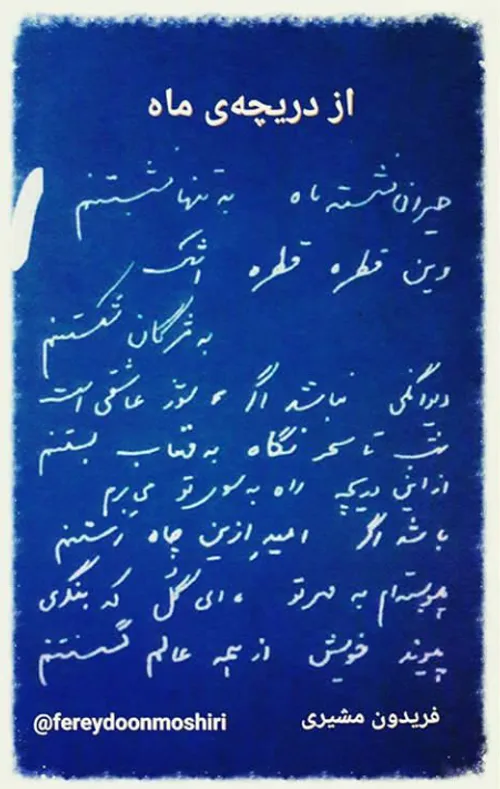 از دریچه‌ی ماه
حیران نشسته ماه به تنها نشستنم
وین قطره قطره اشک
به مژگان شکستنم
دیوانگی نباشد اگر، سوز عاشقی است
شب تا سحر نگاه به مهتاب بستنم
از این دریچه راه به سوی تو می‌برم
باشد اگر امیدِ ازین چاه رستنم
پیوسته‌ام به مهر تو، ای گُل که بنگری
پیوند خویش از همه عالم گسستنم
فریدون مشیری
@fereydoonmoshiri